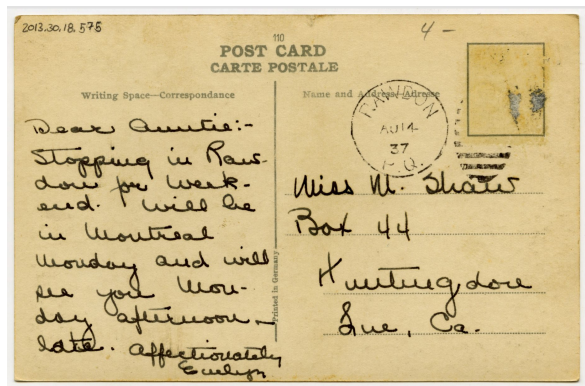 2013.30.18.575
4 -
110
POST CARD
CARTE POSTALE
Writing Space—Correspondance
Name and Address/Adresse
RAWDON
AU 14
37
P.Q.
Dear Auntie:-
Stopping in Raw-
don for week-
end. Will be
in Montreal
Monday and will
see you Mon-
day afternoon -
late. Affectionately
Evelyn
Printed in Germany
Miss M. Shaw
Box 44
Huntingdon
Que, Ca.